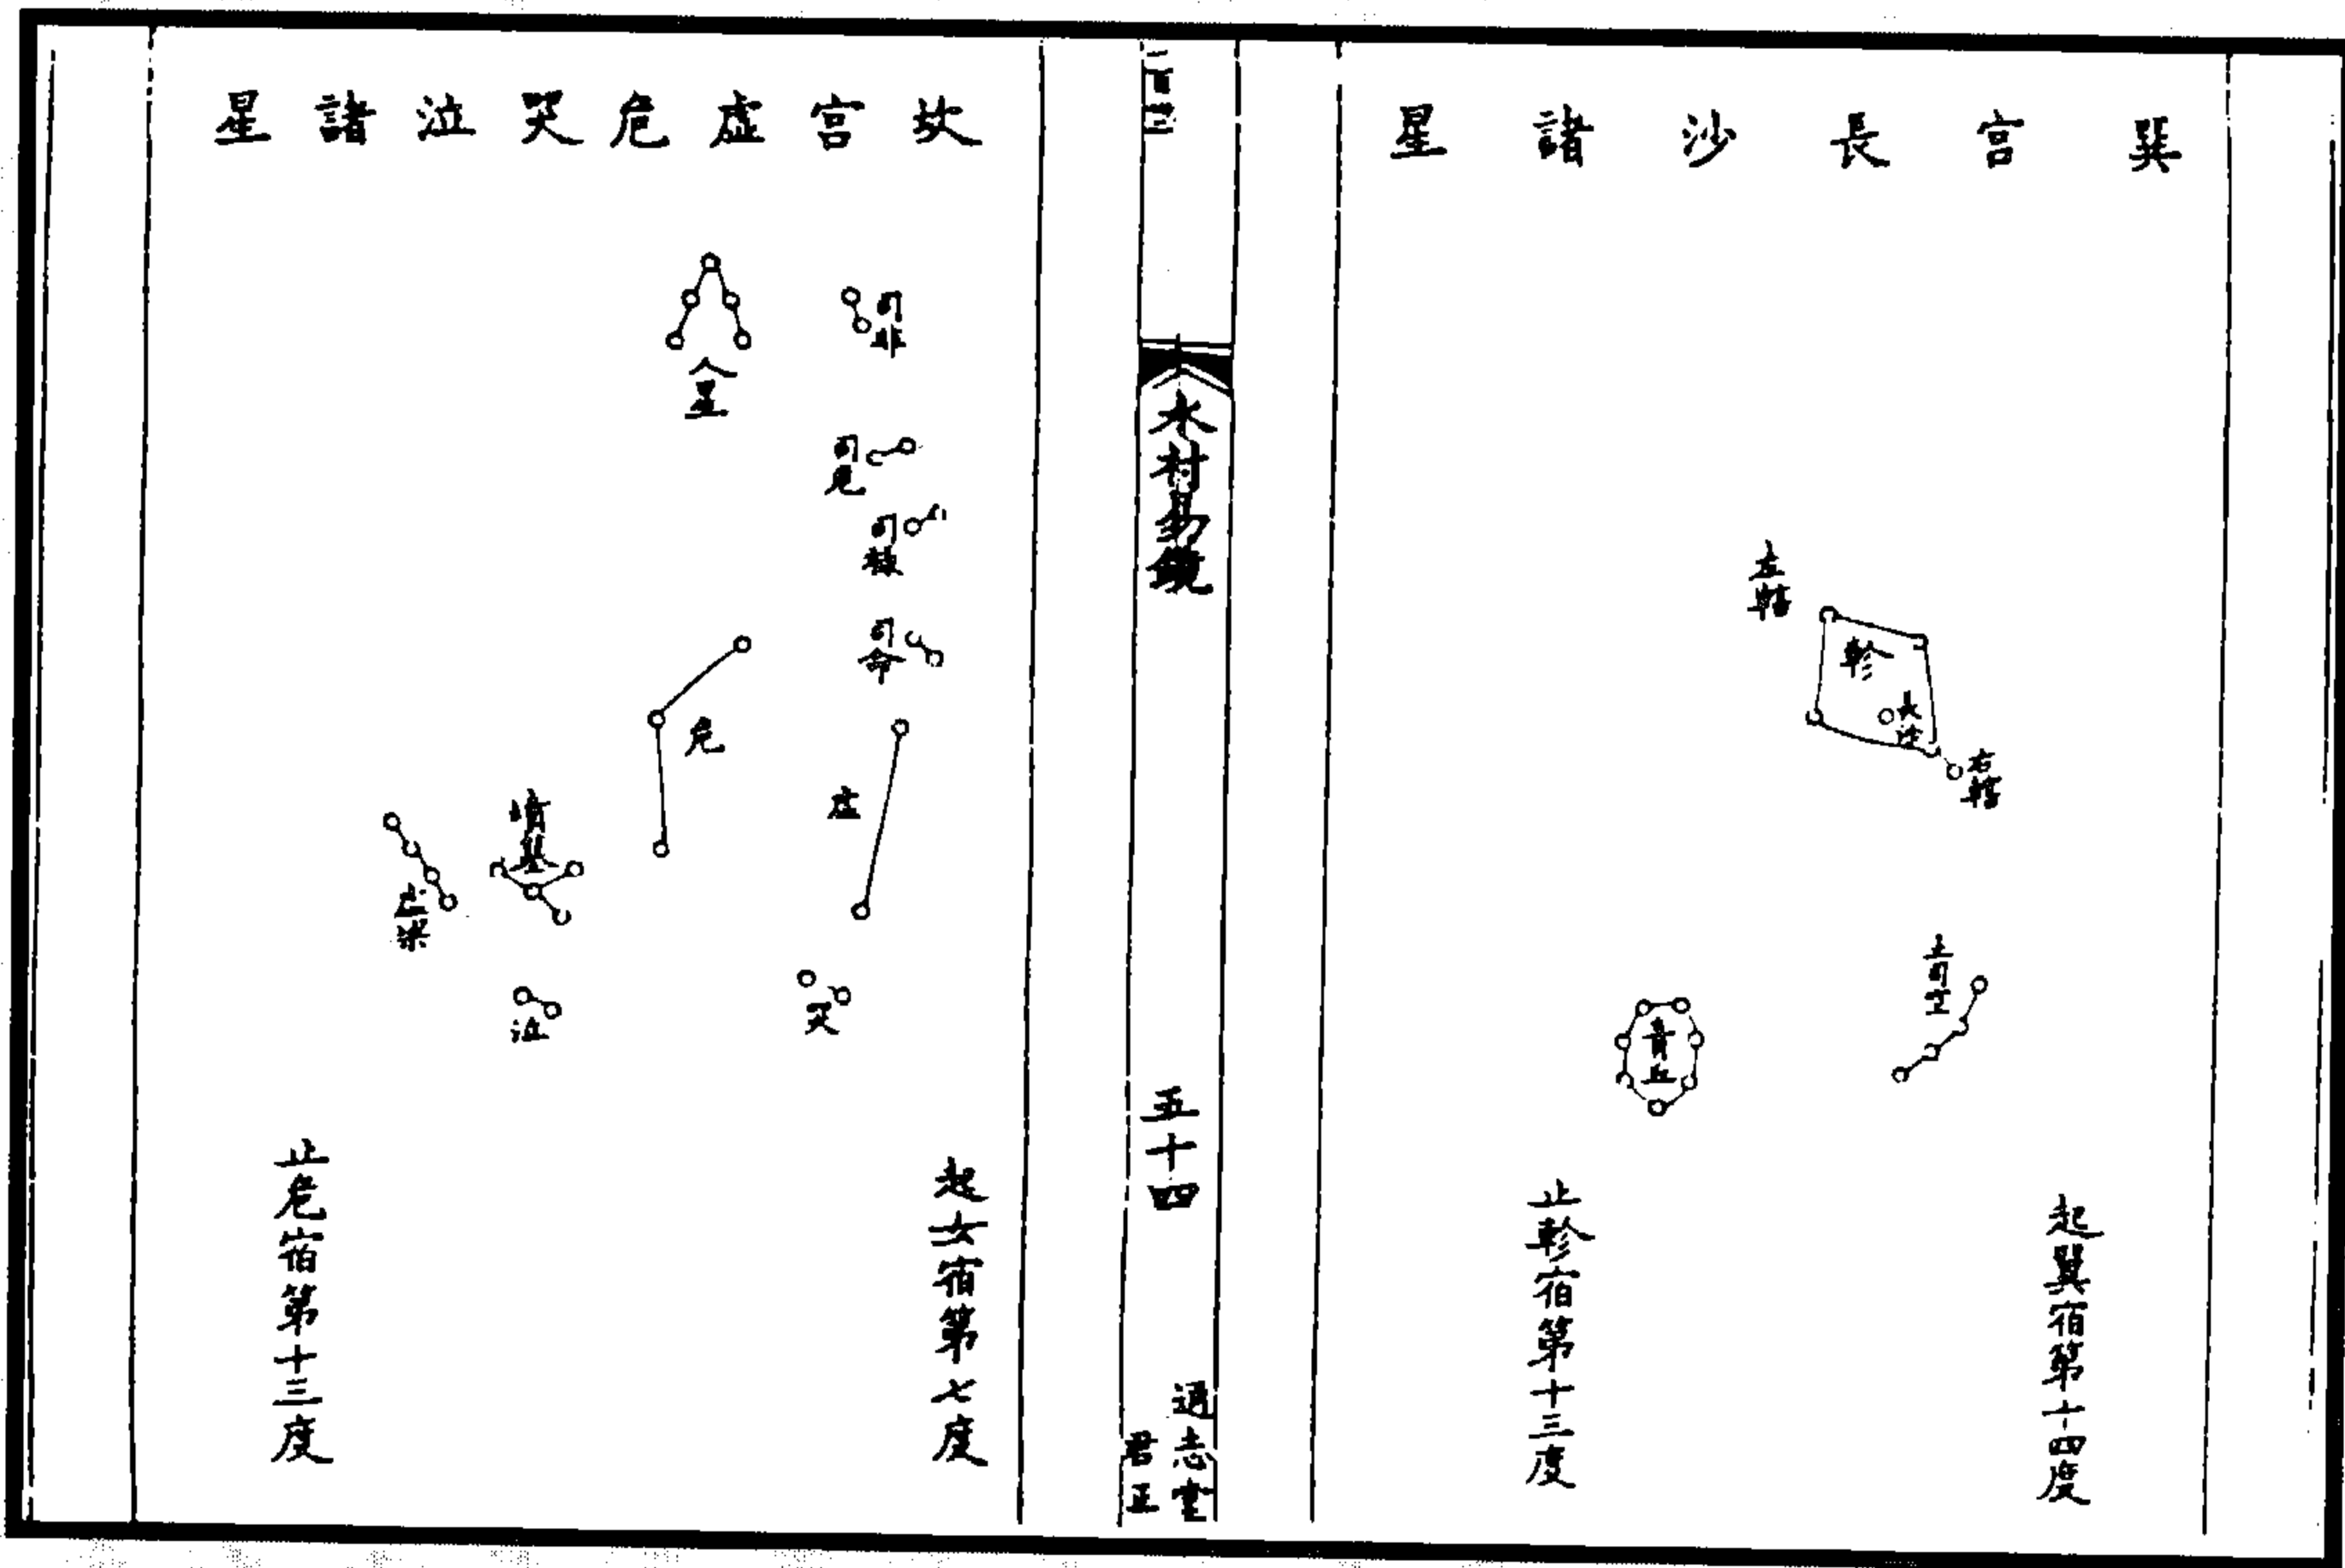 巽宮長沙諸星
左轄
軫
長沙
右轄
土司空
青丘
起翼宿第十四度
止軫宿第十三度
水村易鏡
五十四
通志堂
君正
坎宮虛危哭泣諸星
司非
人星
司危
司祿
司命
危
虛
墳墓
虛梁
哭
泣
起女宿第七度
止危宿第十三度